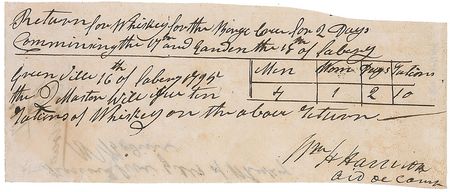 Return for Whiskey for the Barge Crew for 2 Days
Commincing the 17th and Ending the 18th of
Green Ville 16th of 1795
Men Wome Days Rations
4 1 2 10
the Q Master Will Issue ten
Rations of Whiskey on the above Return
Wm H Harrison
aid de camp